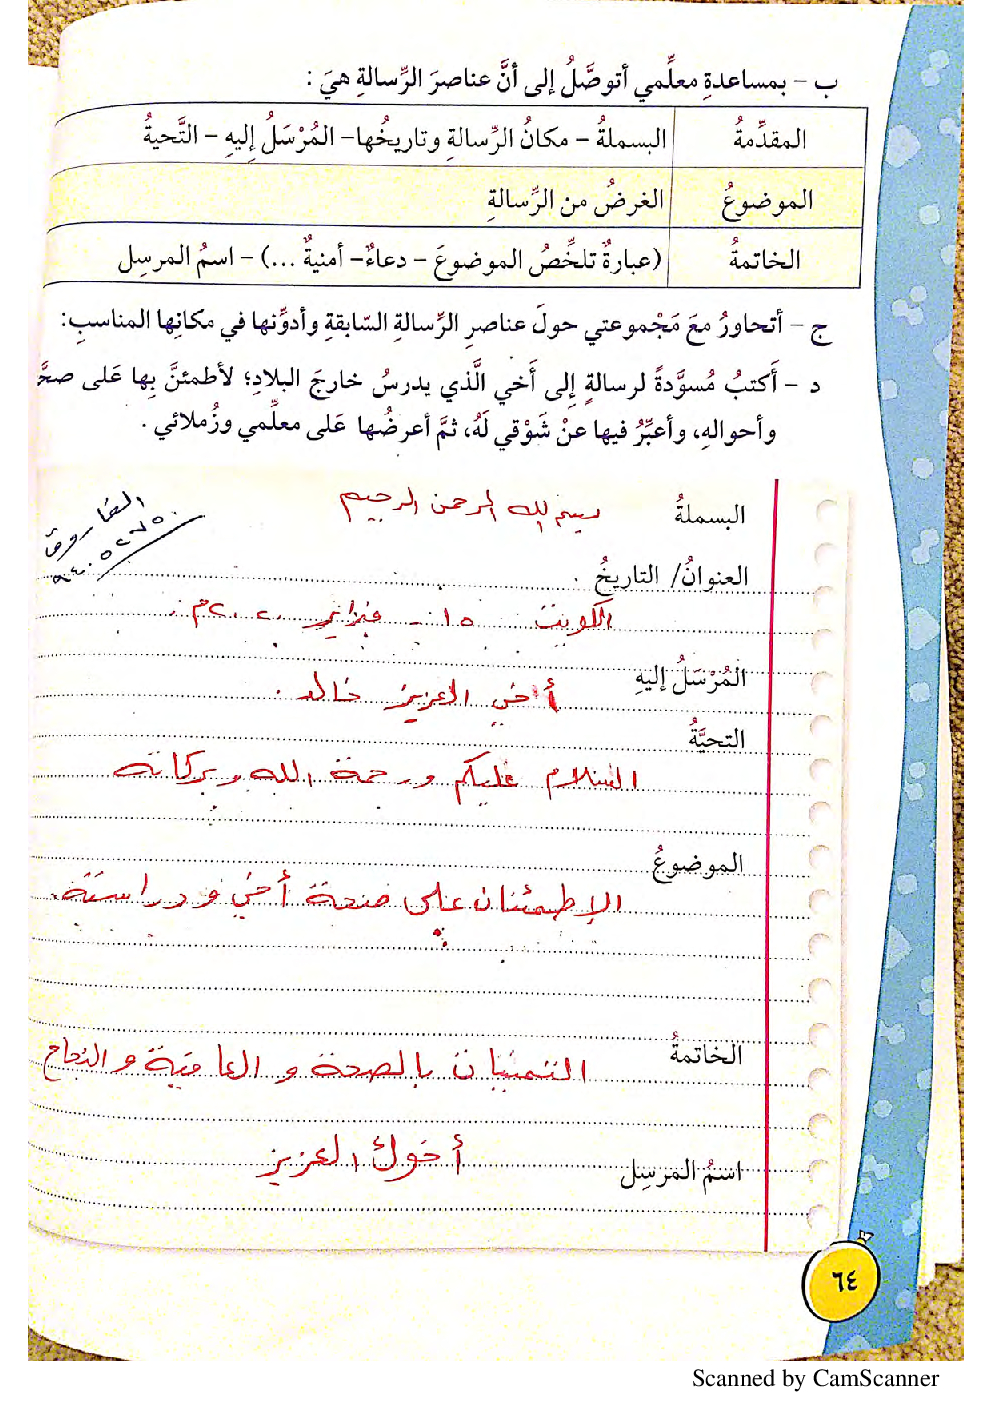 ب - بمساعدةِ معلِّمي أتوصَّلُ إلى أنَّ عناصرَ الرِّسالةِ هيَ :
المقدِّمةُ البسملةُ - مكانُ الرِّسالةِ وتاريخُها - المُرْسَلُ إليهِ - التَّحيةُ
الموضوعُ الغرضُ من الرِّسالةِ
الخاتمةُ (عبارةٌ تلخِّصُ الموضوعَ - دعاءٌ - أمنيةٌ ...) - اسمُ المرسِل
ج - أتحاورُ معَ مَجْموعتي حولَ عناصرِ الرِّسالةِ السّابقةِ وأدوِّنها في مكانِها المناسبِ:
د - أَكتبُ مُسوَّدةً لرسالةٍ إلى أَخي الَّذي يدرسُ خارجَ البلادِ؛ لأطمئنَّ بِها عَلى صحَّ
وأحوالهِ، وأعبِّرُ فيها عنْ شَوْقي لَهُ، ثمَّ أعرضُها عَلى معلِّمي وزُملائي .
البسملةُ بسم الله الرحمن الرحيم
الفاروق
العنوانُ/ التاريخُ .
الكويت ١٥ - فبراير ٢٠٢٠م.
المُرْسَلُ إليهِ أخي العزيز خالد .
التحيَّةُ
السلام عليكم ورحمة الله وبركاته
الموضوعُ
الإطمئنان على صحة أخي ودراسته.
الخاتمةُ
التمنيات بالصحة والعافية والنجاح
اسمُ المرسِل أخوك العزيز
٦٤
Scanned by CamScanner